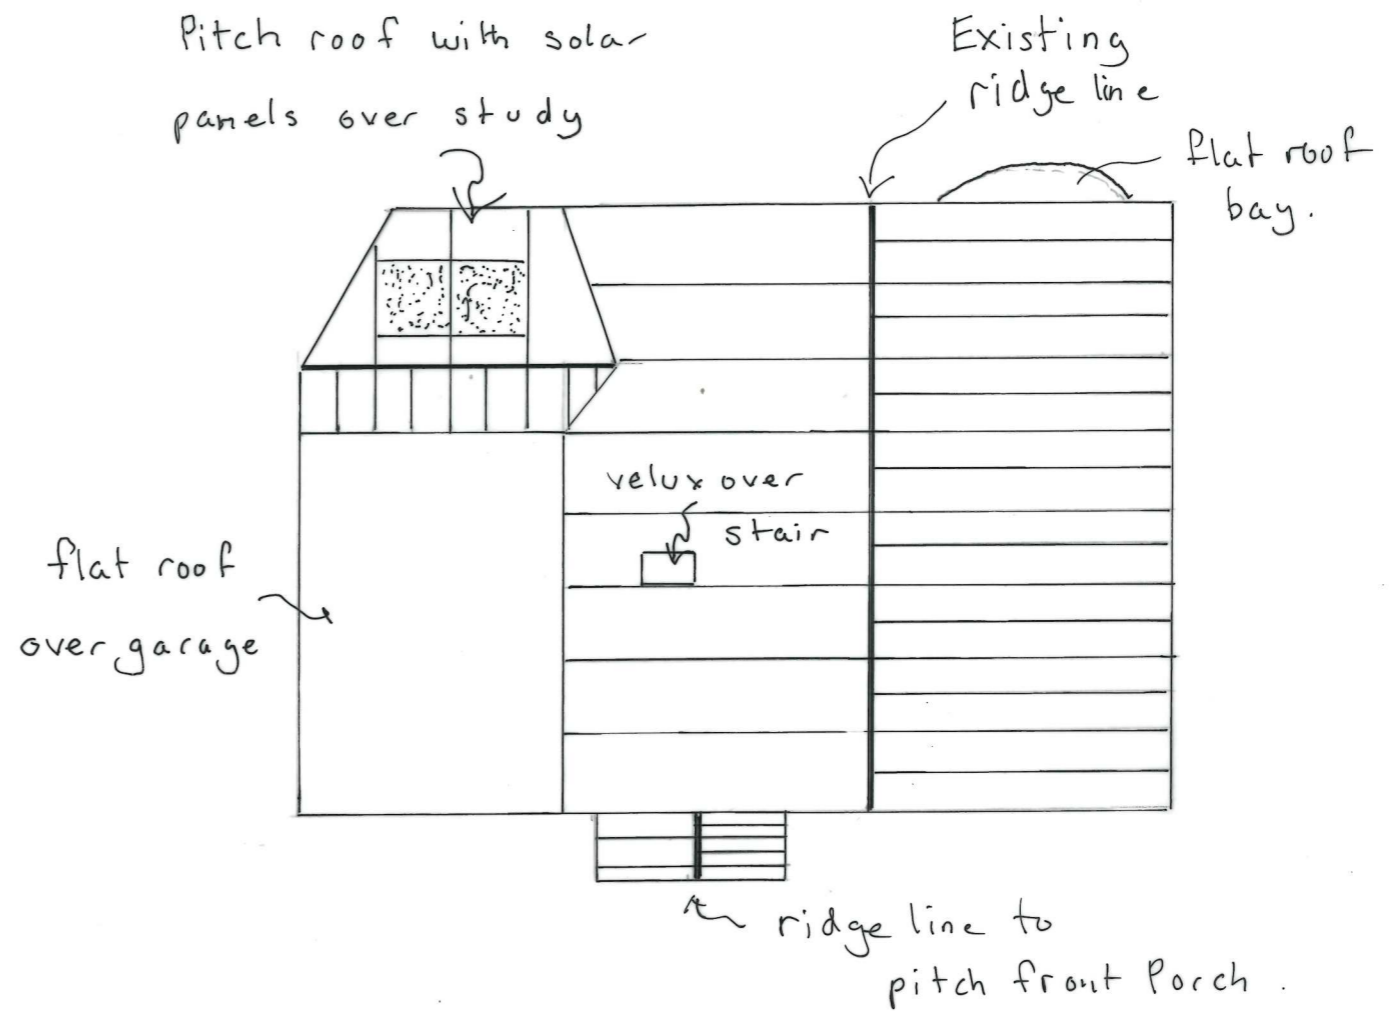 Pitch roof with solar
panels over study
Existing
ridge line
flat roof
bay.
velux over
stair
flat roof
over garage
ridge line to
pitch front Porch.